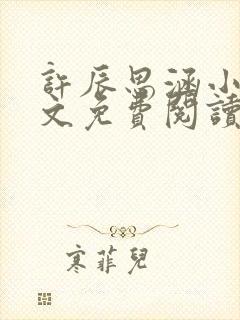 許辰思涵小
文免費閱讀
寒菲兒